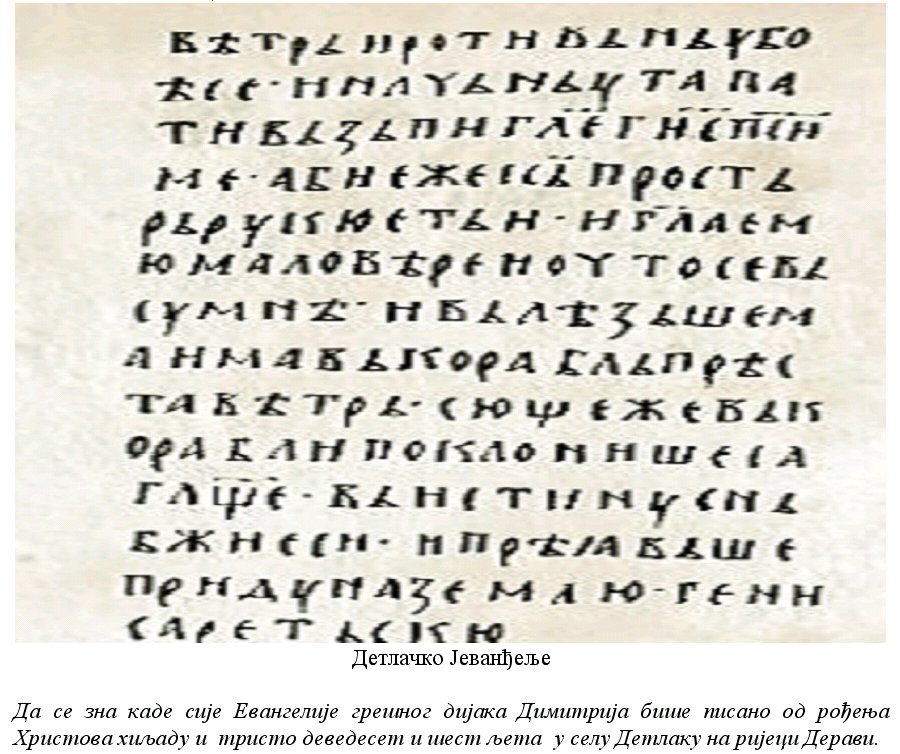 ВѢТРЬ ПРОТИВЬНЬ УБО
ѢСЕ · И НАЧЬНЬ УТАПА
ТИ ВЬЗЬПИ ГЛЕ ГИ СПСИ
МЕ · АБИЕ ЖЕ ІСЬ ПРОСТЬ
РЬ РУКЮ ЕТЬ И · И ГЛА ЕМ
Ю МАЛОВѢРЕ ПОЧТО СЕ ВЬ
СУМНѢ · И ВЬЛѢЗЬШЕМ
АИМА ВЬ КОРАБЛЬ ПРѢС
ТА ВѢТРЬ · СЮЩЕ ЖЕ ВЬ К
ОРАБЛИ ПОКЛОНИШЕ СА
ГЛЩЕ · ВЬ ИСТИНУ СНЬ
БЖИ ЕСИ · И ПРѢІАВЬШЕ
ПРИДУ НА ЗЕМЛЮ · ГЕНИ
САРЕТЬСКЮ
Детлачко Јеванђеље
Да се зна каде сије Евангелије грешног дијака Димитрија бише писано од рођења
Христова хиљаду и тристо деведесет и шест љета у селу Детлаку на ријеци Дерави.